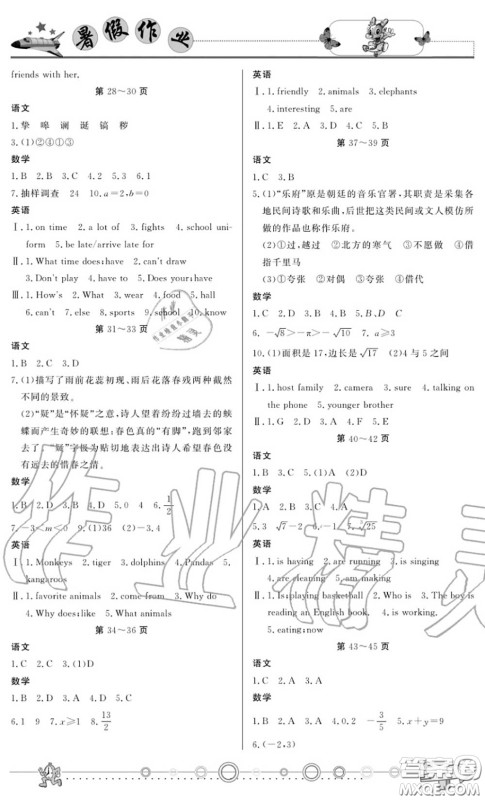 暑假作业
friends with her.
第 28～30 页
语文
1. 挚 嗥 谰 诞 镐 秽
3. (1)②④①③
数学
1. B 2. B 3. C 4. 2 5. 3 6. 3
7. 抽样调查 24 10. a=2, b=0
英语
Ⅰ. 1. on time 2. a lot of 3. fights 4. school uni-
form 5. be late/arrive late for
Ⅱ. 1. What time does; have 2. can't draw
3. Don't play 4. have to 5. Does your; have
Ⅲ. 1. How's 2. What 3. wear 4. food 5. hall
6. can't 7. else 8. sports 9. second 10. know
第 31～33 页
语文
1. B 2. C 3. D
7. (1)描写了雨前花蕊初现、雨后花落春残两种截然
不同的景致。
(2)“疑”是“怀疑”之意,诗人望着纷纷过墙去的蛱
蝶而产生奇妙的联想:春色真的“有脚”,跑到邻家
去了。“疑”字极为贴切地表达出诗人希望春色没
有远去的惜春之情。
数学
1. B 2. D 3. B 4. D 5. 0 4 6. 1/2
7. -3<m<0 9. (1)36 (2)-3, 4
英语
Ⅰ. 1. Monkeys 2. tiger 3. dolphins 4. Pandas 5.
kangaroos
Ⅱ. 1. favorite animals 2. come from 3. Why do
4. Why does; like 5. What animals
第 34～36 页
语文
1. C 2. C 3. (1)D
数学
1. B 2. C 3. A 4. D 5. C
6. 1 9 7. x⩾1 8. 13/2
英语
Ⅰ. 1. friendly 2. animals 3. elephants
4. interesting 5. are
Ⅱ. 1. E 2. A 3. D 4. C 5. B
第 37～39 页
语文
1. C 3. B
5. (1)“乐府”原是朝廷的音乐官署,其职责是采集各
地民间诗歌和乐曲,后世把这类民间或文人模仿所
做的作品也称作乐府。
(2)①过,越过 ②北方的寒气 ③不愿做 ④借
指千里马
(3)①夸张 ②对偶 ③夸张 ④借代
数学
1. C 2. D 3. A 4. D 5. B、D C
6. -√8>-π>-√10 7. a⩾3
10. (1)面积是 17,边长是√17 (2)4 与 5 之间
英语
Ⅰ. 1. host family 2. camera 3. sure 4. talking on
the phone 5. younger brother
Ⅱ. 1. G 2. D 3. A 4. F 5. E
第 40～42 页
语文
1. B 3. C 5. (1)A (2)D
数学
1. A 2. B 3. C 4. A
英语
Ⅰ. 1. is having 2. are running 3. is singing
4. are cleaning 5. am taking
Ⅱ. 1. Is; playing basketball 2. Who is 3. The boy is
reading an English book. 4. is working,
5. eating; now
第 43～45 页
语文
1. C 2. D 3. B
数学
1. B 2. A 3. A 4. 0. 2 -3/5 5. x+y=9
6. (-2, 3)
作业精灵
答案圈
MXQE.COM